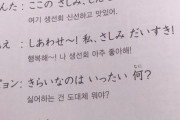 んた：ここの さしみ、しん
여기 생선회 신선하고 맛있어.
え：しあわせ〜！私、さしみ だいすき！
행복해~! 나 생선회 아주 좋아해!
ョン：きらいなのは いったい 何？
싫어하는 건 도대체 뭐야?